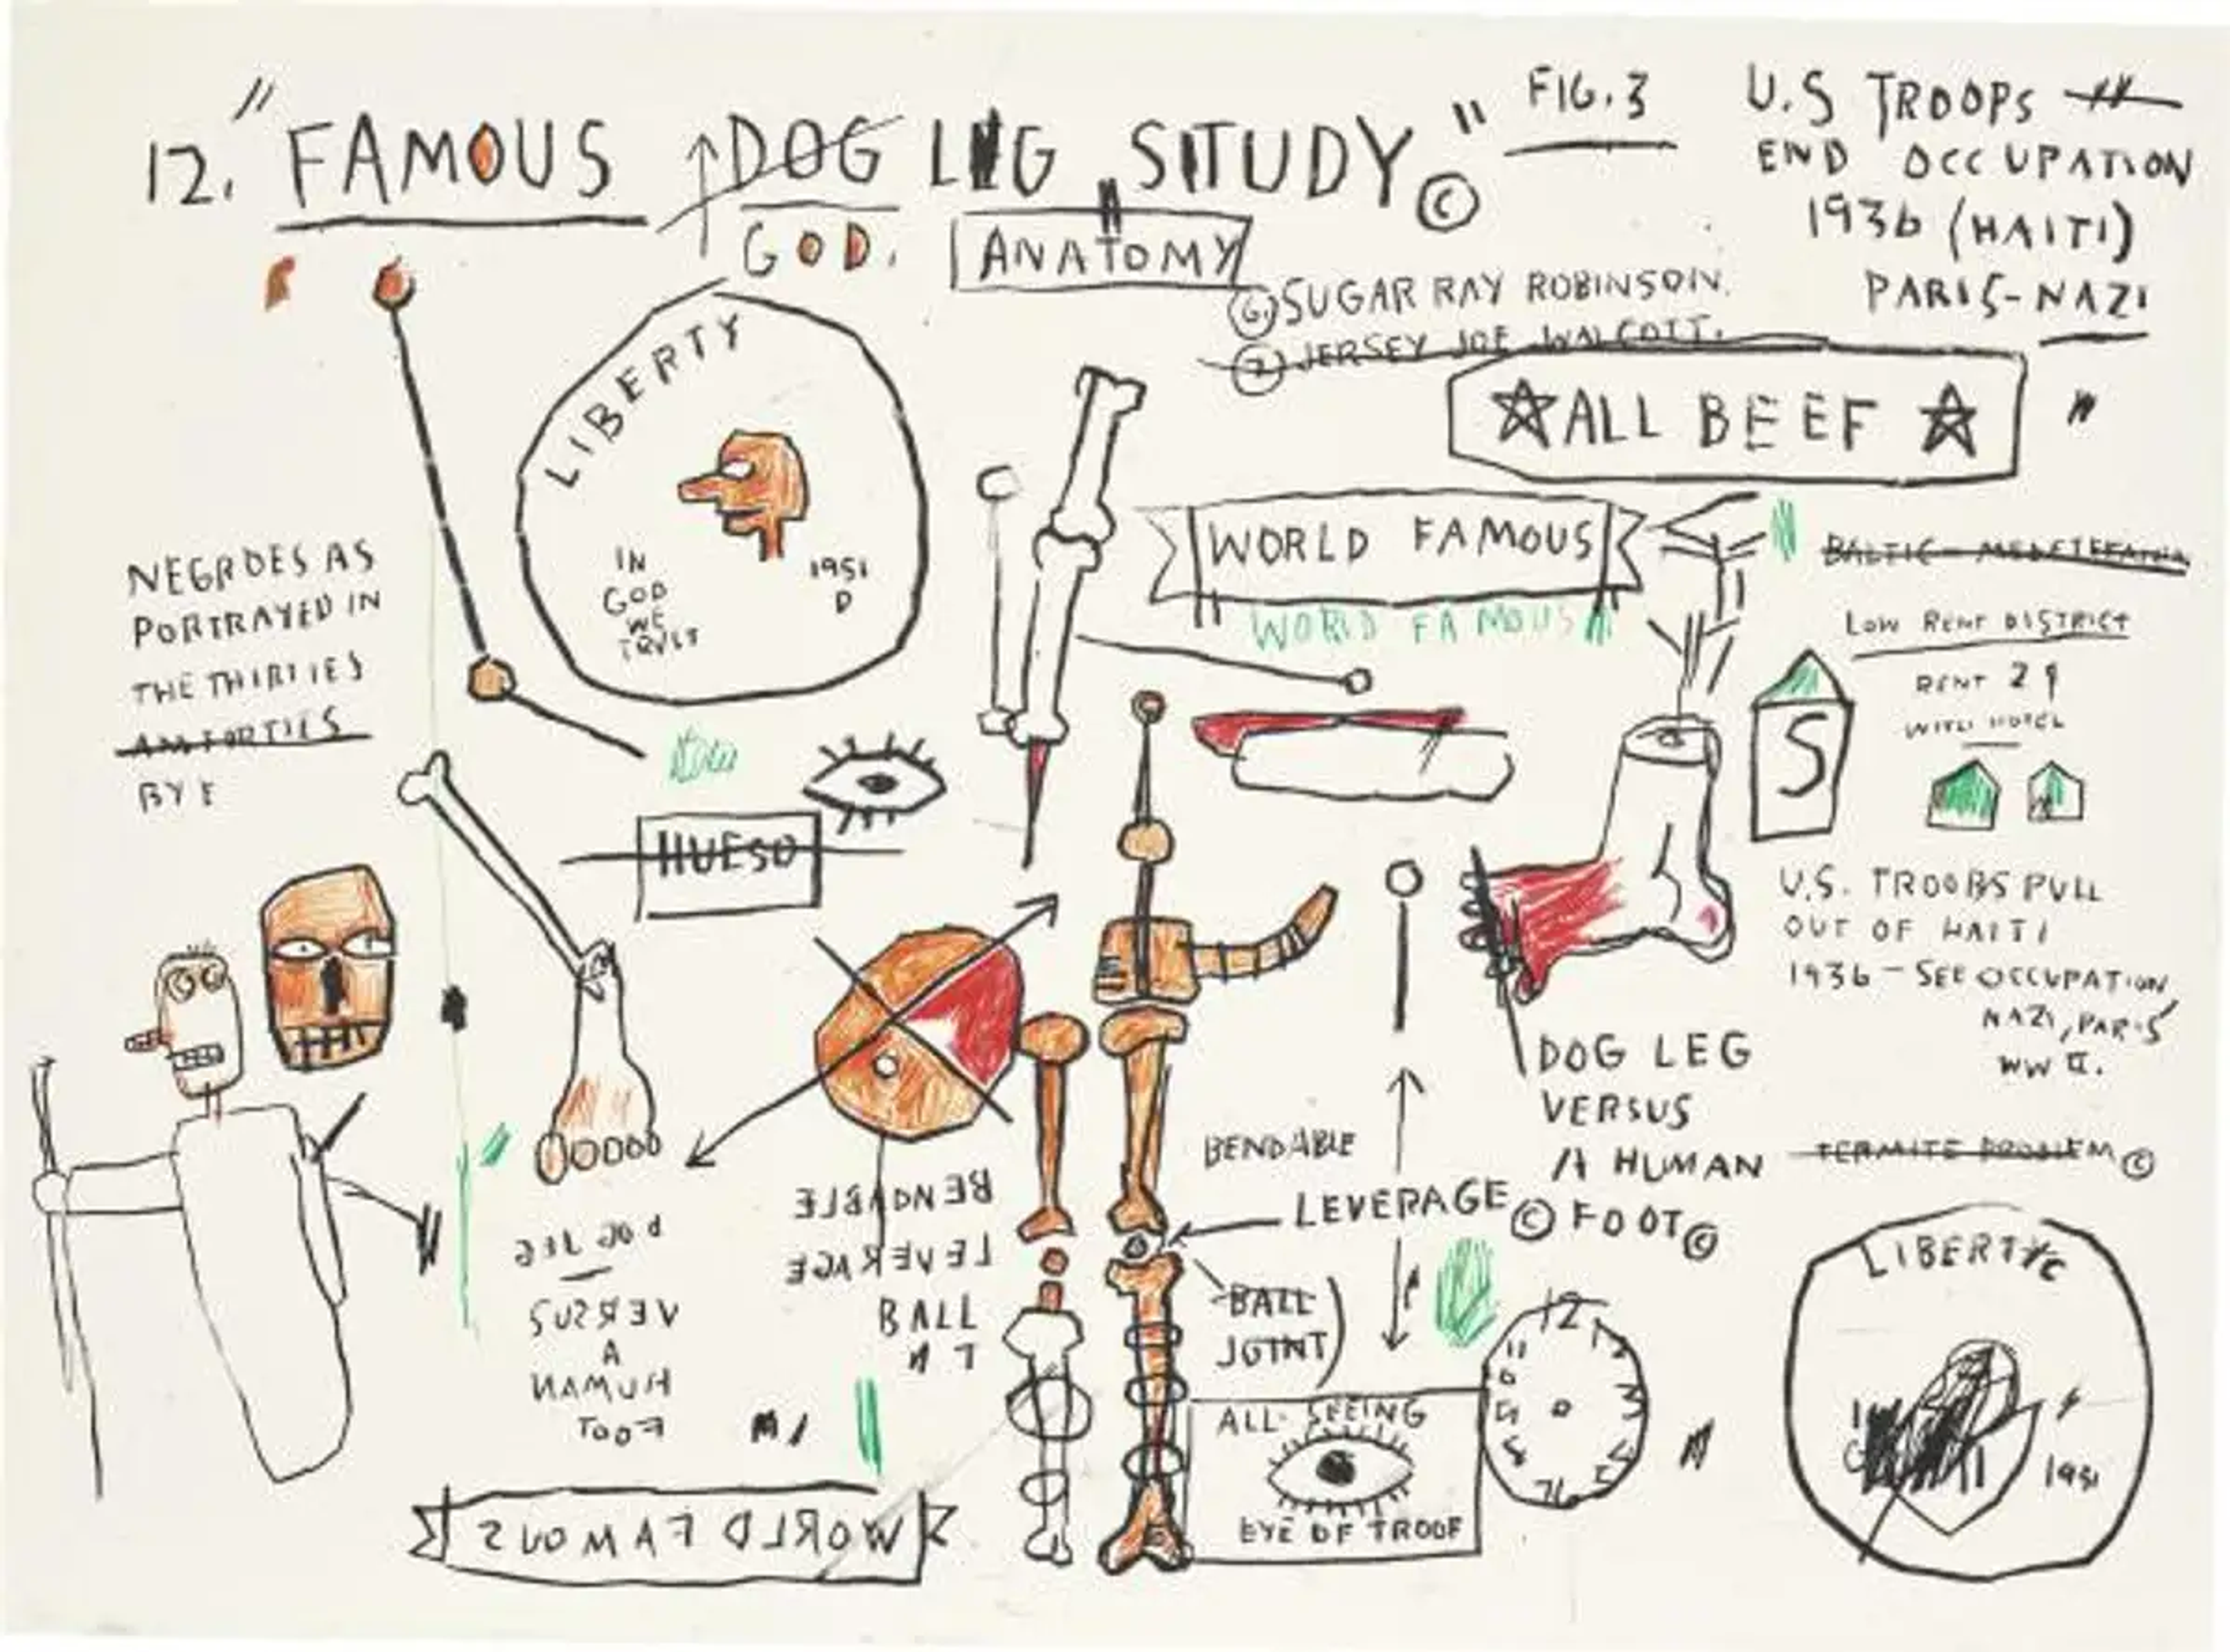 12. "FAMOUS DOG LEG STUDY" ©
GOD.
ANATOMY
FIG. 3
U.S TROOPS
END OCCUPATION
1936 (HAITI)
PARIS-NAZI
6. SUGAR RAY ROBINSON.
7 JERSEY JOE WALCOTT.
ALL BEEF
LIBERTY
IN
GOD
WE
TRUST
1951
D
WORLD FAMOUS
WORLD FAMOUS
LOW RENT DISTRICT
RENT
WITH HOTEL
S
NEGROES AS
PORTRAYED IN
THE THIRTIES
HUESO
U.S. TROOPS PULL
OUT OF HAITI
1936 - SEE OCCUPATION
NAZI, PARIS
WW II.
DOG LEG
VERSUS
A HUMAN
FOOT ©
TERMITE PROBLEM ©
BENDABLE
LEVERAGE ©
BALL
JOINT)
BENDABLE
LEVERAGE
BALL
DOG LEG
VERSUS
A
HUMAN
FOOT
WORLD FAMOUS
ALL SEEING
EYE OF TROOF
12
11
LIBERTY
1951